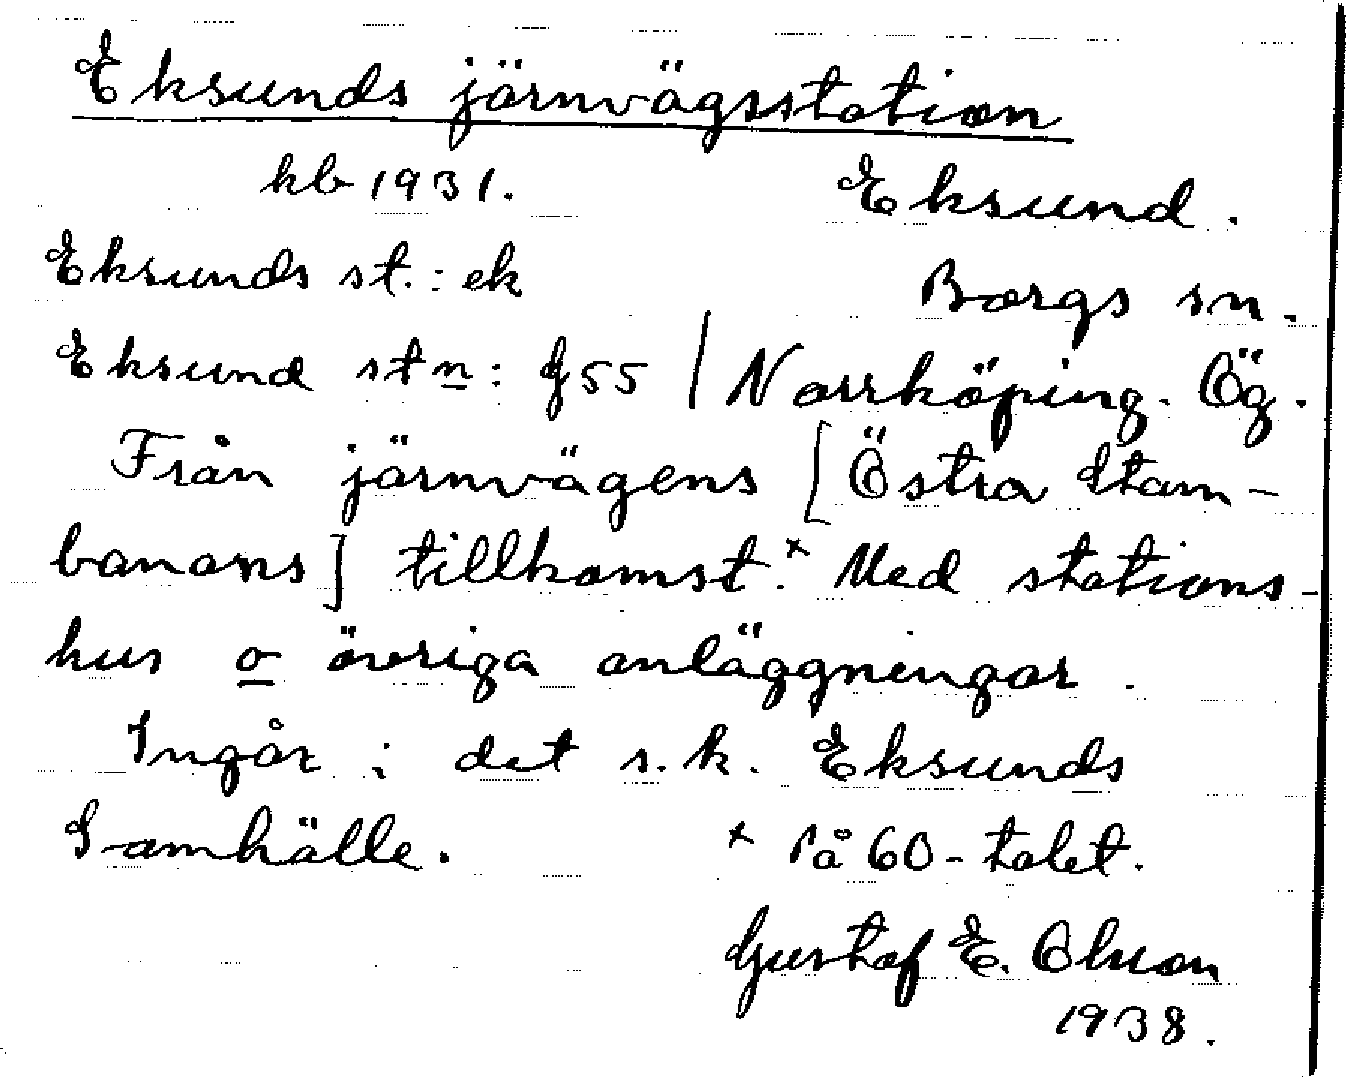 Eksunds järnvägsstation
kb 1931. Eksund.
Eksunds st.: ek Borgs sn.
Eksund stn: G 55 / Norrköping. Ög.
Från järnvägens [Östra Stam-
banans] tillkomst.x Med stations-
hus o övriga anläggningar.
Ingår i det s.k. Eksunds
Samhälle. x På 60-talet.
Gustaf E. Olsson
1938.